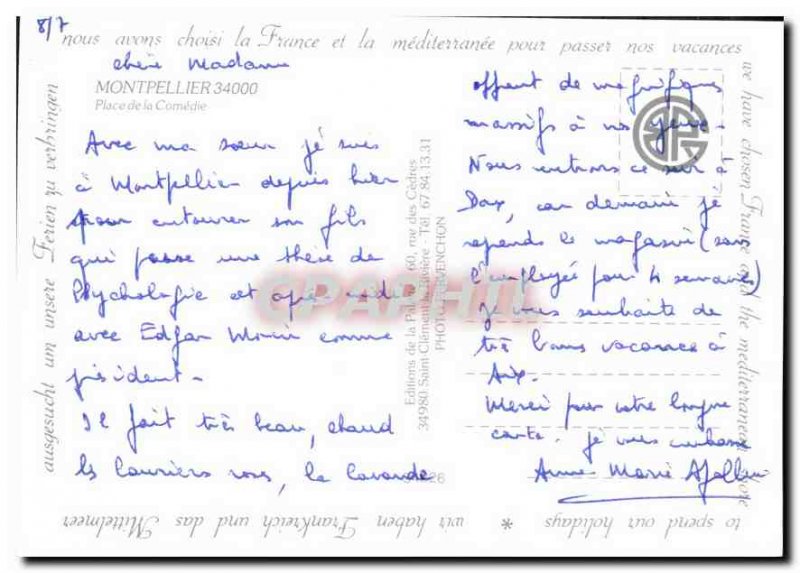 8/7
nous avons choisi la France et la méditerranée pour passer nos vacances
chère Madame
MONTPELLIER 34000
Place de la Comédie
Avec ma sœur je suis
à Montpellier depuis hier
pour entourer son fils
qui passe une thèse de
Psychologie cet après midi
avec Edgar Morin comme
président.
Il fait très beau, chaud
les lauriers roses, la lavande
offrent de magnifiques
massifs à nos yeux.
Nous rentrons ce soir à
Dax, car demain je
reprends le magasin (sans
l'employée pour 4 semaines)
je vous souhaite de
très bonnes vacances à
Aix.
Merci pour votre longue
carte. je vous embrasse
Anne Marie
Editions de la 60, rue des Cèdres
34980 Saint-Clément la Rivière - Tél. 67.84.13.31
PHOTO
26
CPAPHIL
we have chosen France and the mediterranean
to spend our holidays * wir haben Frankreich und das Mittelmeer
ausgesucht um unsere Ferien zu verbringen